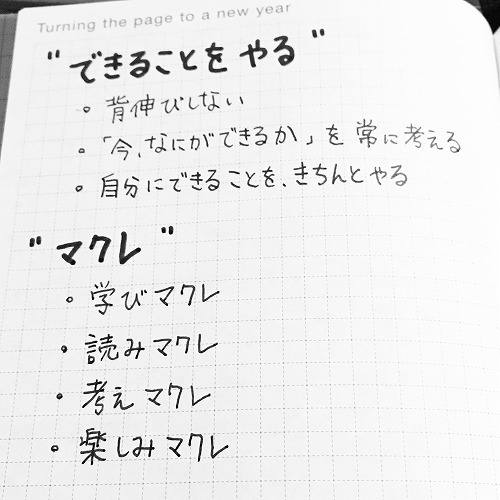 Turning the page to a new year
"できることを やる"
。背伸びしない
。「今、なにができるか」を 常に考える
。自分にできることを、きちんとやる
"マクレ"
。学びマクレ
。読みマクレ
。考えマクレ
。楽しみマクレ